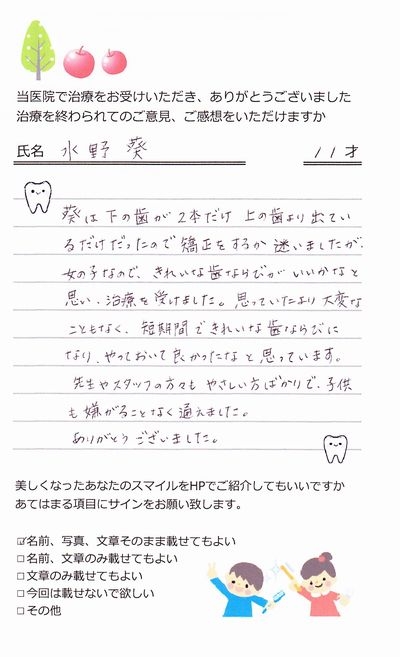 当医院で治療をお受けいただき、ありがとうございました
治療を終わられてのご意見、ご感想をいただけますか
氏名 水野 葵 11才
葵は下の歯が2本だけ上の歯より出てい
るだけだったので矯正をするか迷いましたが、
女の子なので、きれいな歯ならびがいいかなと
思い、治療を受けました。思っていたより大変な
こともなく、短期間できれいな歯ならびに
なり、やっておいて良かったなと思っています。
先生やスタッフの方々もやさしい方ばかりで、子供
も嫌がることなく通えました。
ありがとうございました。
美しくなったあなたのスマイルをHPでご紹介してもいいですか
あてはまる項目にサインをお願い致します。
☑名前、写真、文章そのまま載せてもよい
□名前、文章のみ載せてもよい
□文章のみ載せてもよい
□今回は載せないで欲しい
□その他